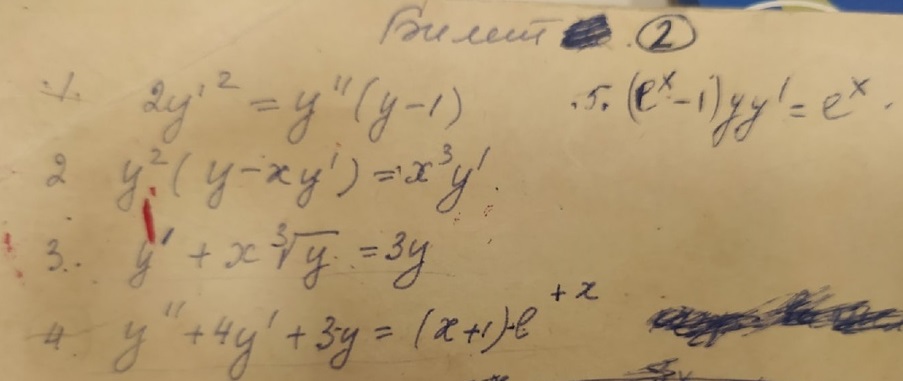 Билет 2
1. 2y'² = y''(y-1)
5. (e^x-1)yy' = e^x.
2 y²(y-xy') = x³y'
3. y' + x∛y = 3y
4. y'' + 4y' + 3y = (x+1)·e^{+x}